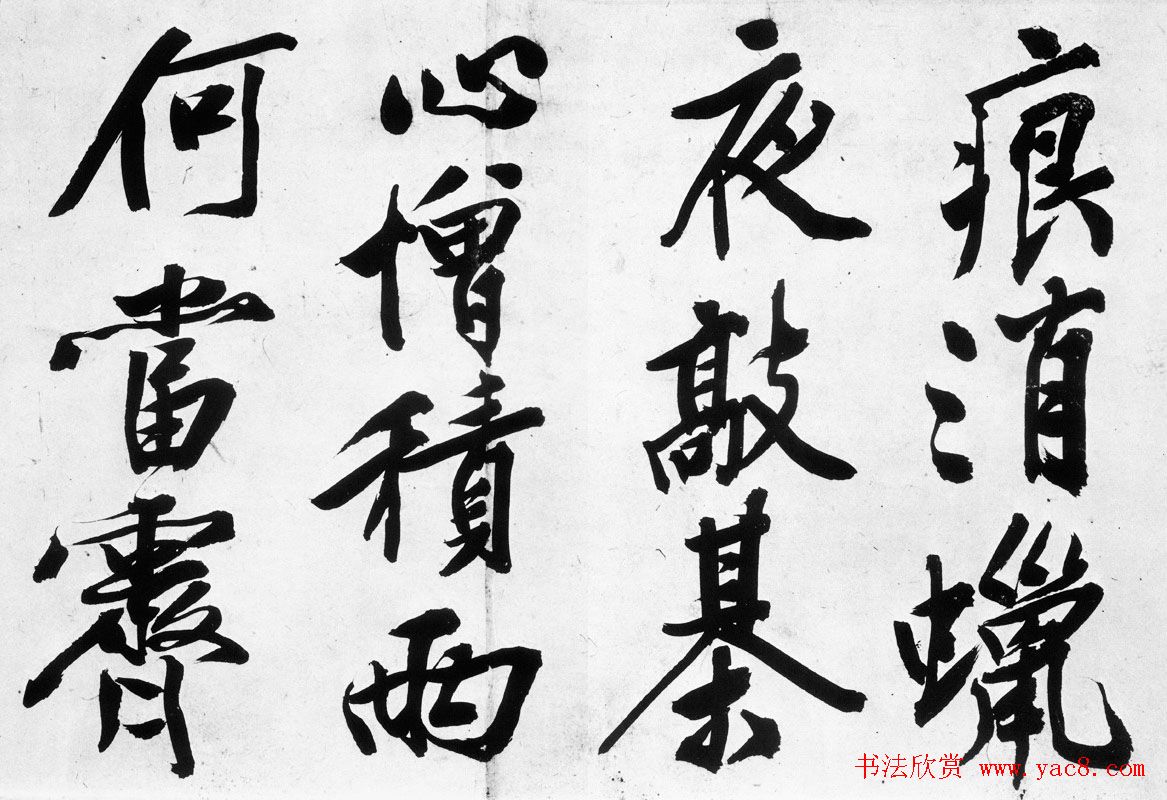 痕消蠟
夜敲棊
心憎積雨
何當霽
书法欣赏 www.yac8.com